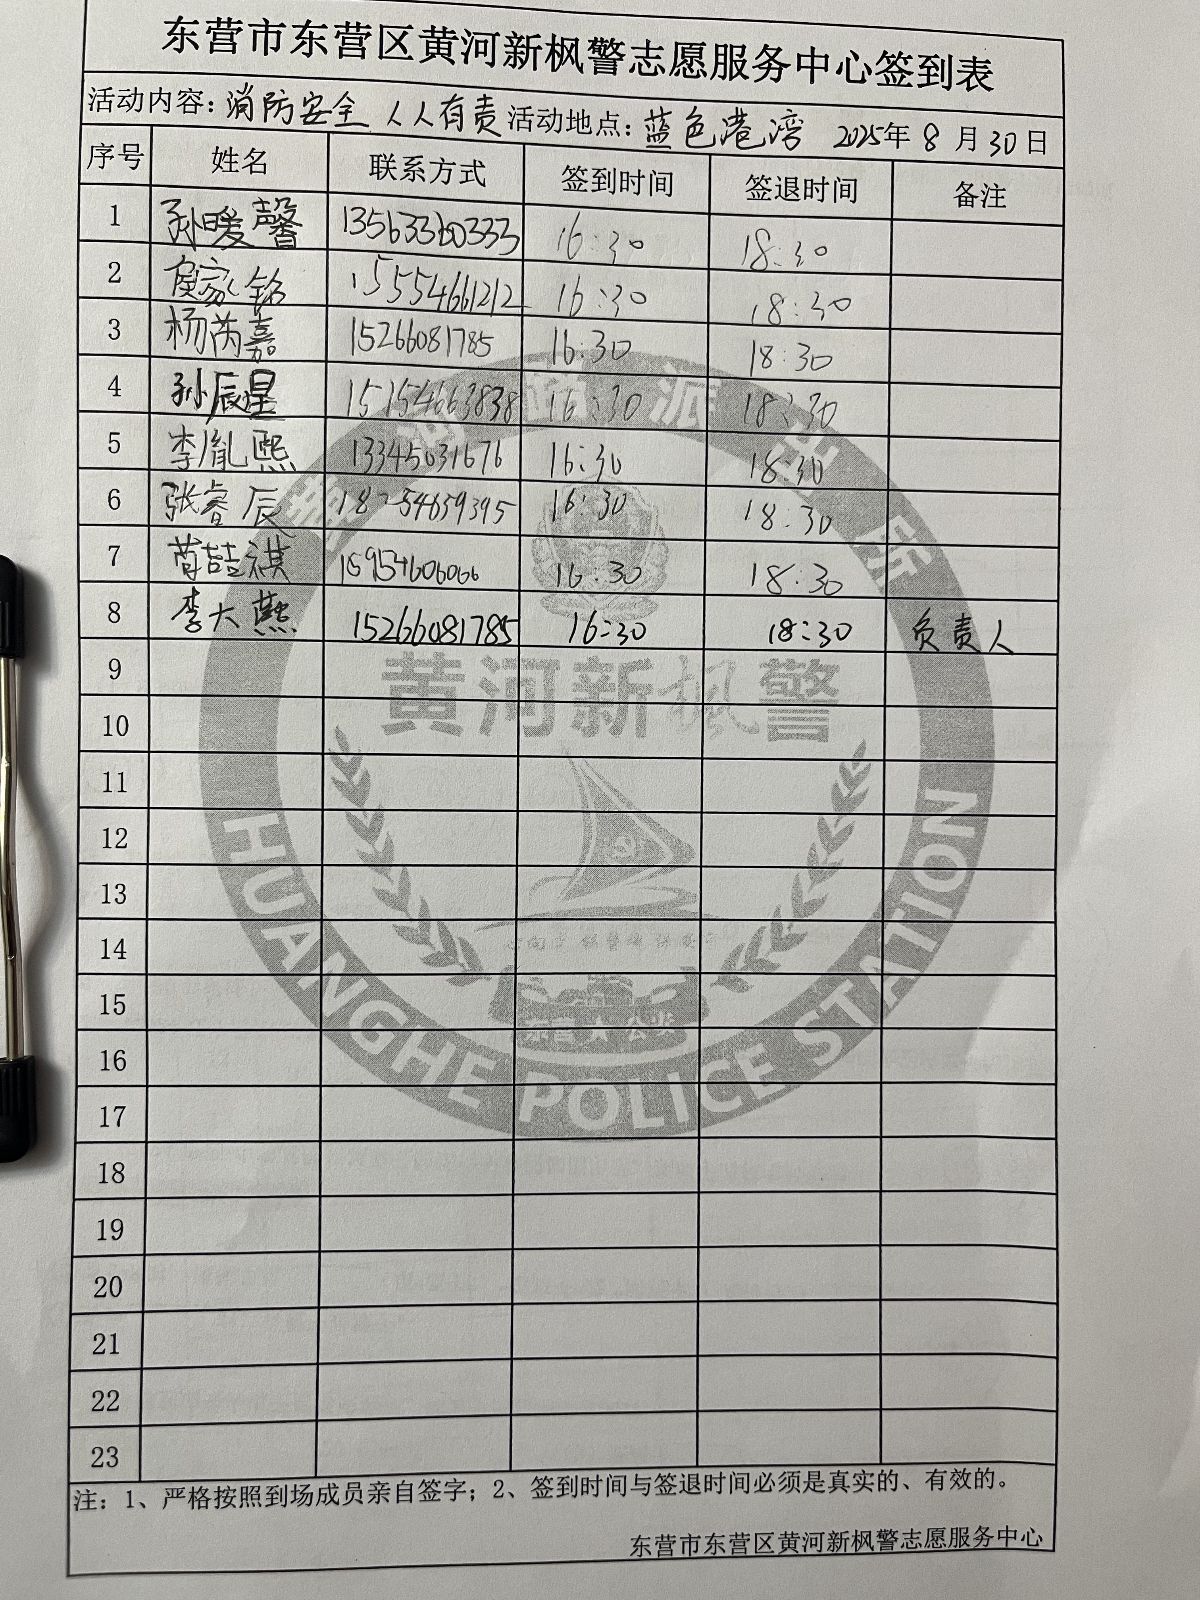 东营市东营区黄河新枫警志愿服务中心签到表
活动内容：消防安全 人人有责 活动地点：蓝色港湾 2025年8月30日
序号 姓名 联系方式 签到时间 签退时间 备注
1 孙暖馨 13563360333 16:30 18:30
2 侯家铭 15554661212 16:30 18:30
3 杨芮嘉 15266081785 16:30 18:30
4 孙辰星 15154663838 16:30 18:30
5 李胤熙 13345031676 16:30 18:30
6 张睿辰 16:30 18:30
7 16:30 18:30
8 李大燕 15266081785 16:30 18:30 负责人
9
10
11
12
13
14
15
16
17
18
19
20
21
22
23
黄河路派出所
黄河新枫警
HUANGHE POLICE STATION
注：1、严格按照到场成员亲自签字；2、签到时间与签退时间必须是真实的、有效的。
东营市东营区黄河新枫警志愿服务中心